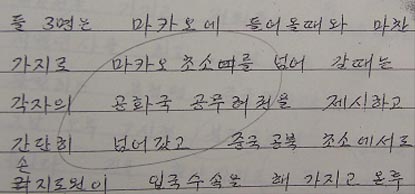 들 3명는 마카오에 들어올때와 마찬
가지로 마카오 초소떼를 넘어 갈때는
각자의 공화국 공무려권을 제시하고
간단히 넘어갔고 중국 공북 초소에서도
손
지도원이 입국수속을 해 가지고 온후